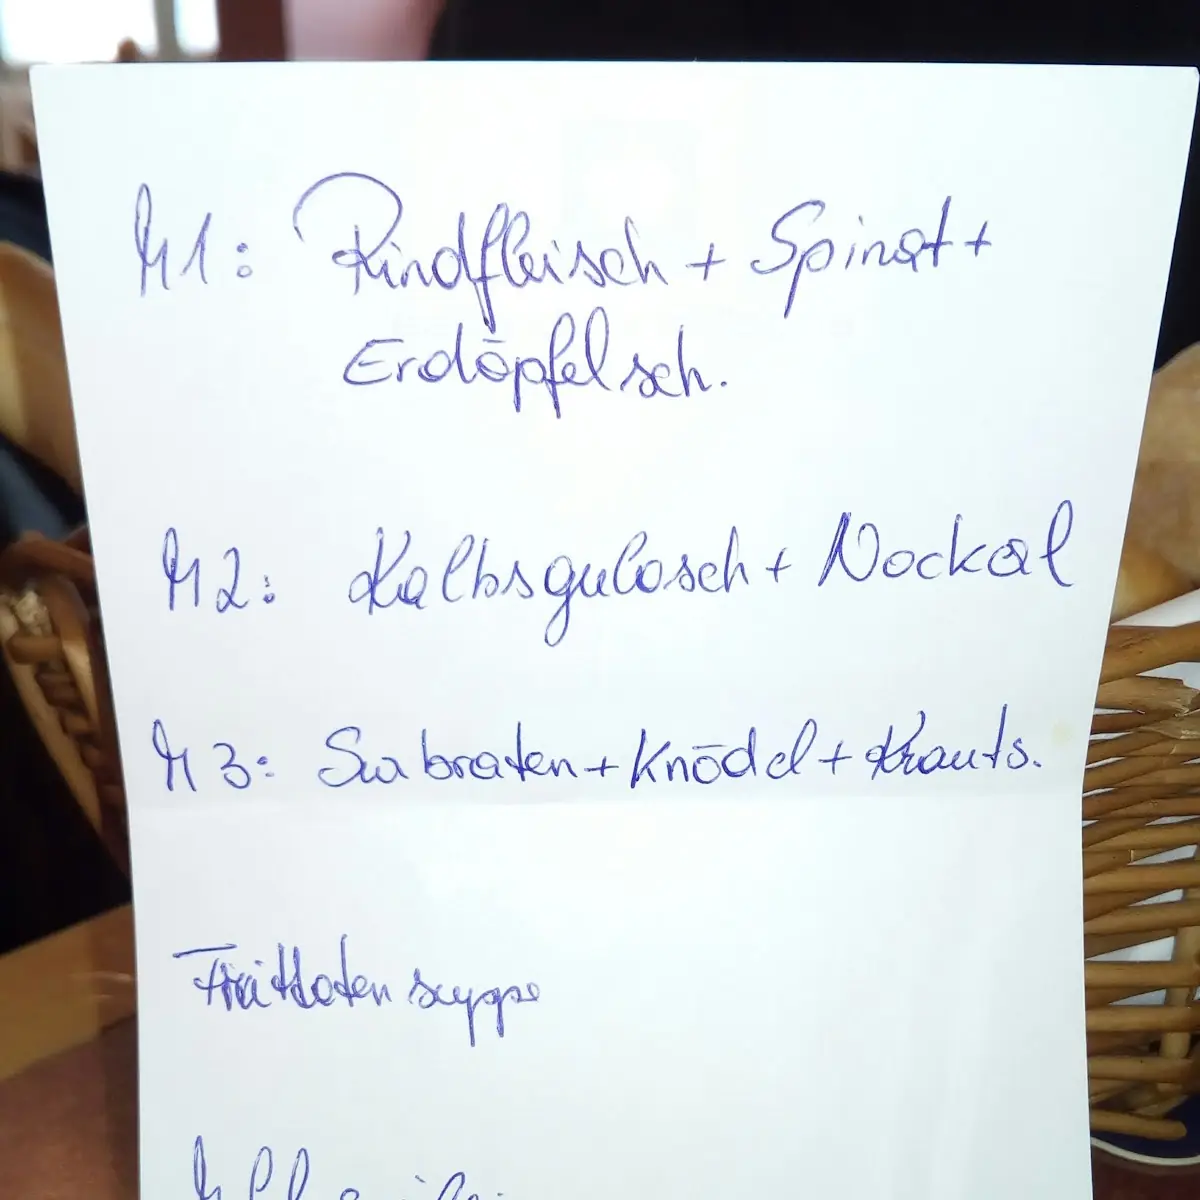 M1: Rindfleisch + Spinat +
Erdöpfelsch.
M2: Kalbsgulasch + Nockal
M3: Sabraten + Knödel + Krauts.
Frittatensuppe